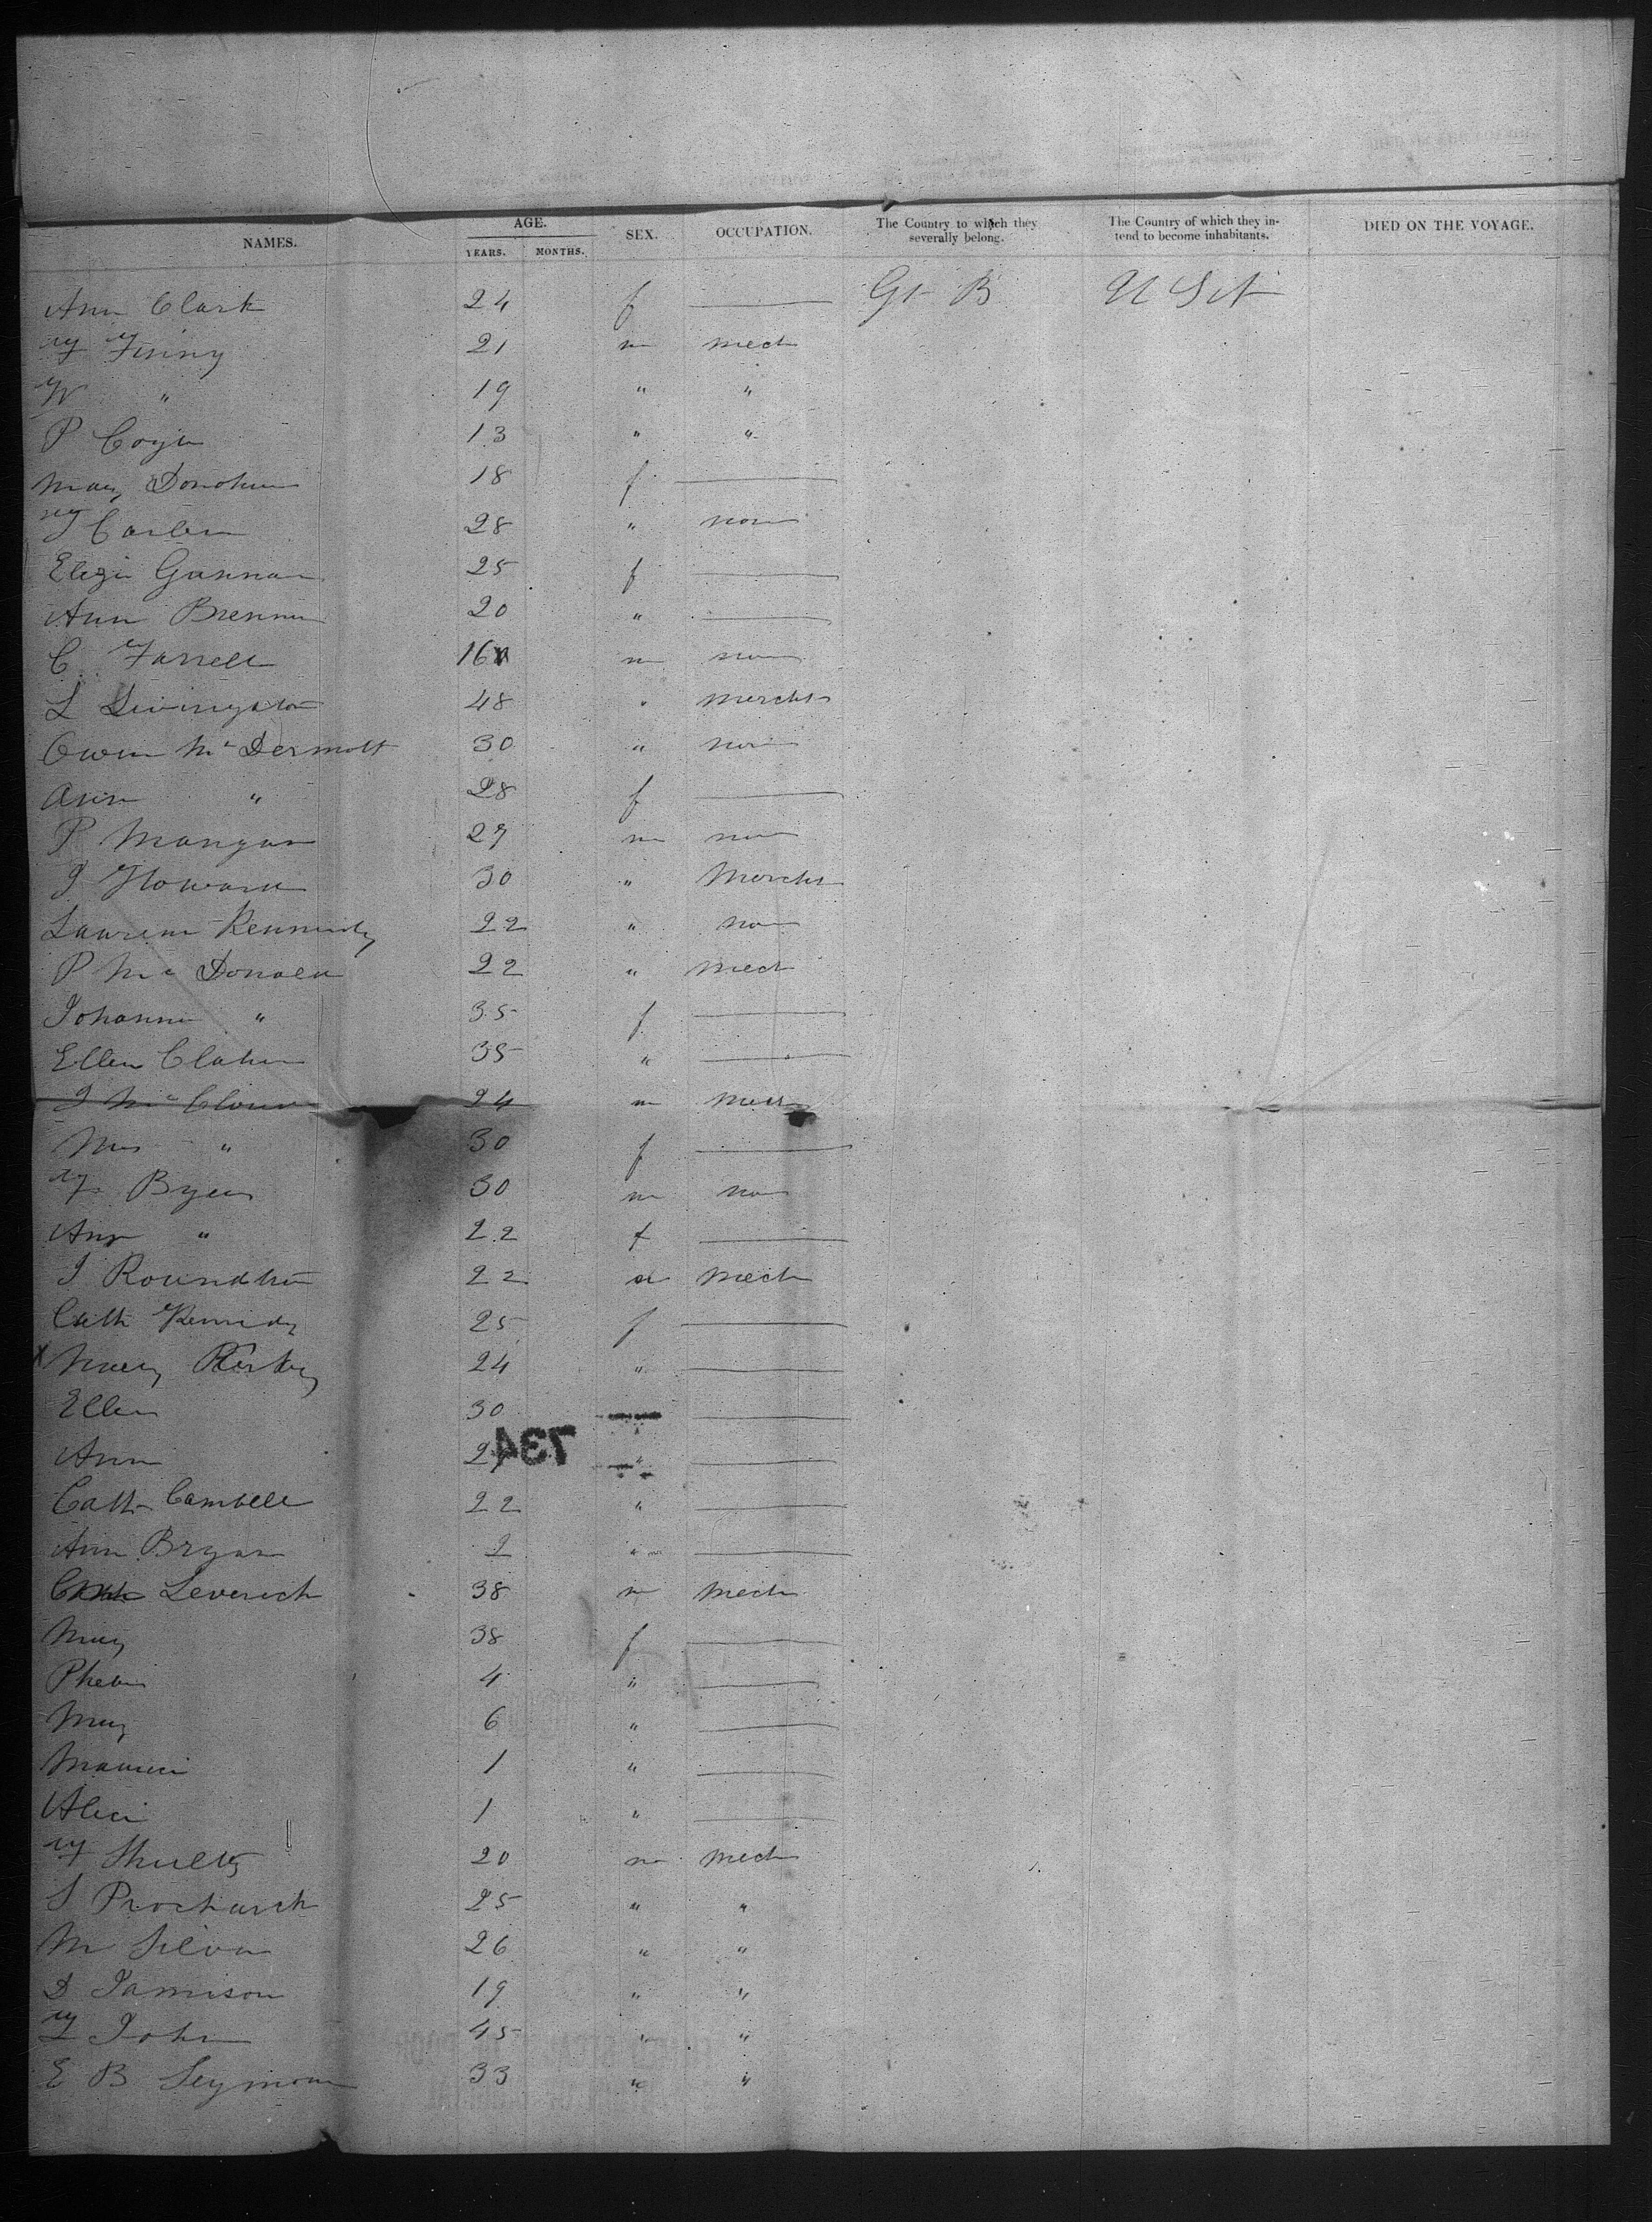 NAMES. AGE. YEARS. MONTHS. SEX. OCCUPATION. The Country to which they severally belong. The Country of which they intend to become inhabitants. DIED ON THE VOYAGE.
Ann Clark 24 f — Gt B U St
Finny 21 m mech
W " 19 " "
P 13 " "
Mary Donohue 18 f —
28 " non
Gannon 25 f —
Ann Brennen 20 " —
C Farrell 16 m non
L Livingston 48 " Mercht
Owen McDermott 30 " non
Ann " 28 f —
P Mangan 27 m non
J Howard 30 " Mercht
Lawrence Kennedy 22 " non
P McDonald 22 " mech
Johanna " 35 f —
Ellen 35 " —
J 24 m
Mrs " 30 f —
30 m non
Ann " 22 f —
J Roundtree 22 m mech
Cath Kennedy 25 f —
X Mary 24 " —
Ellen 30 —
734
Ann " —
Cath Cambell 22 " —
Ann Bryan 2 " —
Leverich 38 m mech
Mary 38 f —
Phebe 4 " —
May 6 " —
1 " —
Alice 1 " —
20 m mech
S 25 " "
M Silva 26 " "
D Jamison 19 " "
John 45 " "
E B Seymour 33 " "